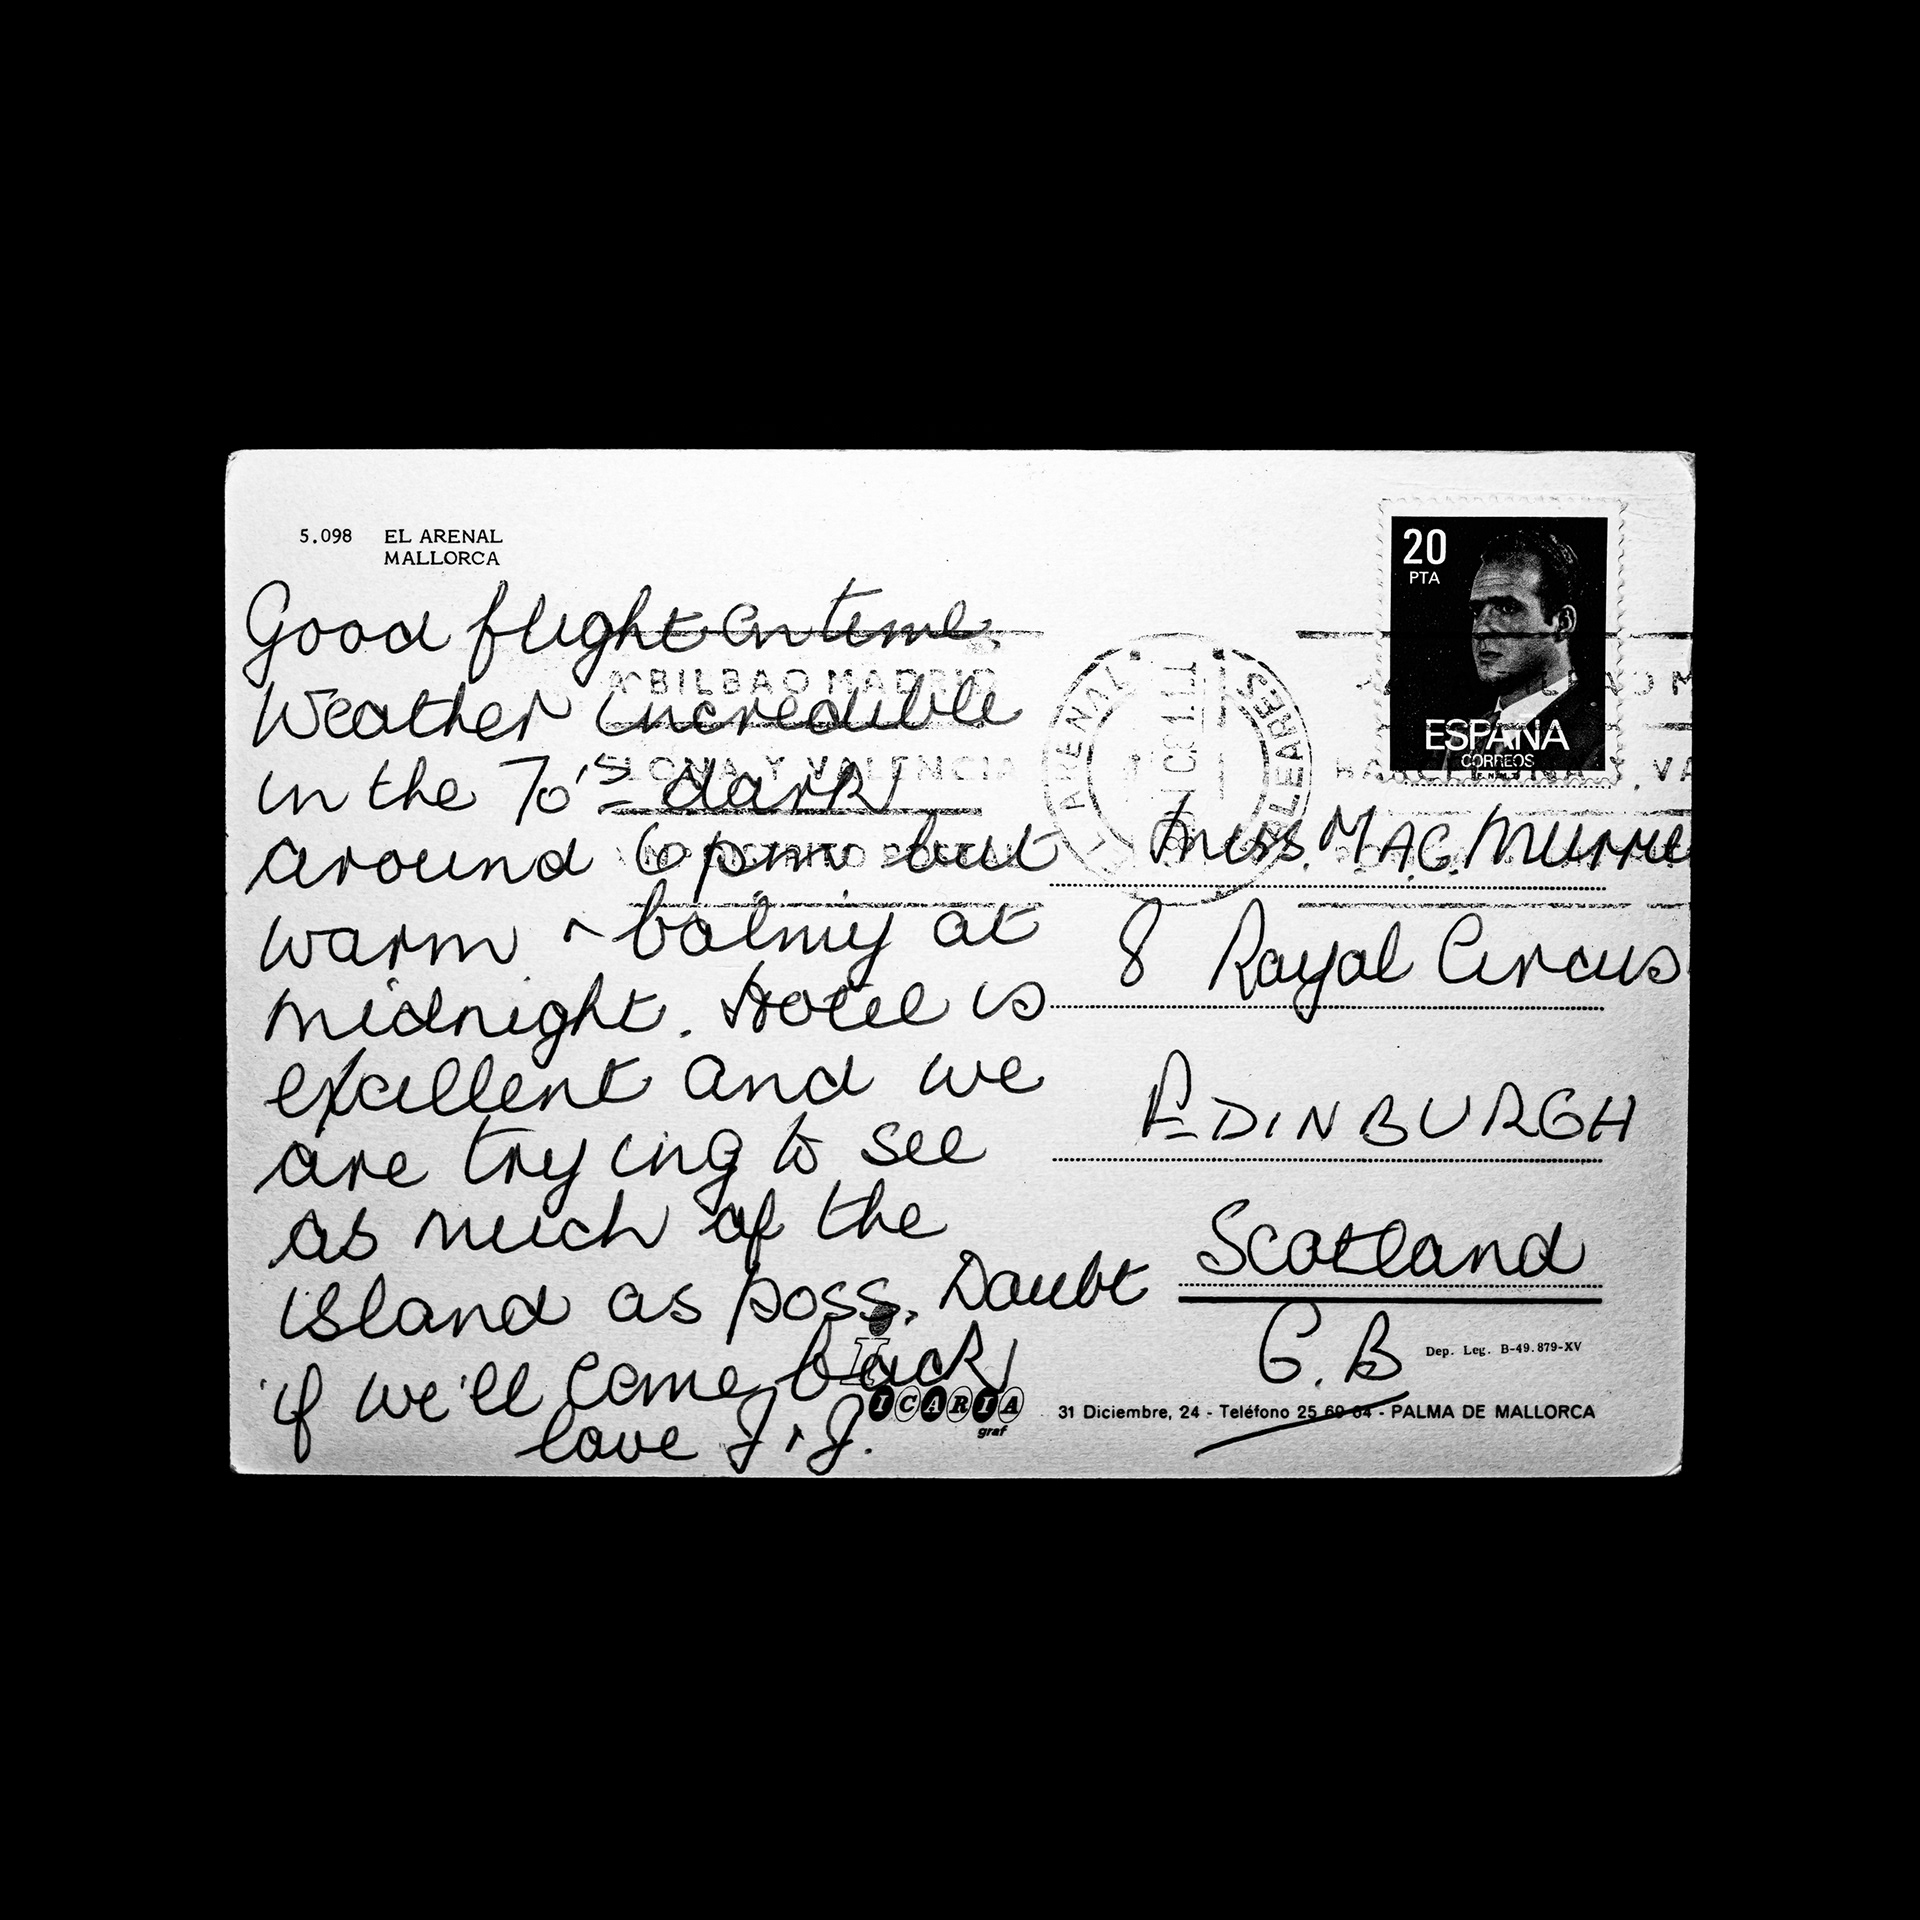 5.098 EL ARENAL
MALLORCA
20
PTA
ESPAÑA
CORREOS
Good flight on time
Weather incredible
in the 70's dark
around 6pm but
warm + balmy at
midnight. Hotel is
excellent and we
are trying to see
as much of the
island as poss. Doubt
if we'll come back
love J + J.
BILBAO MADRID
Y VALENCIA
EL ARENAL
BALEARES
BARCELONA Y VA
Miss. MAC.
8 Royal Circus
EDINBURGH
Scotland
G.B
Dep. Leg. B-49.879-XV
ICARIA
graf
31 Diciembre, 24 - Teléfono 25 69 64 - PALMA DE MALLORCA